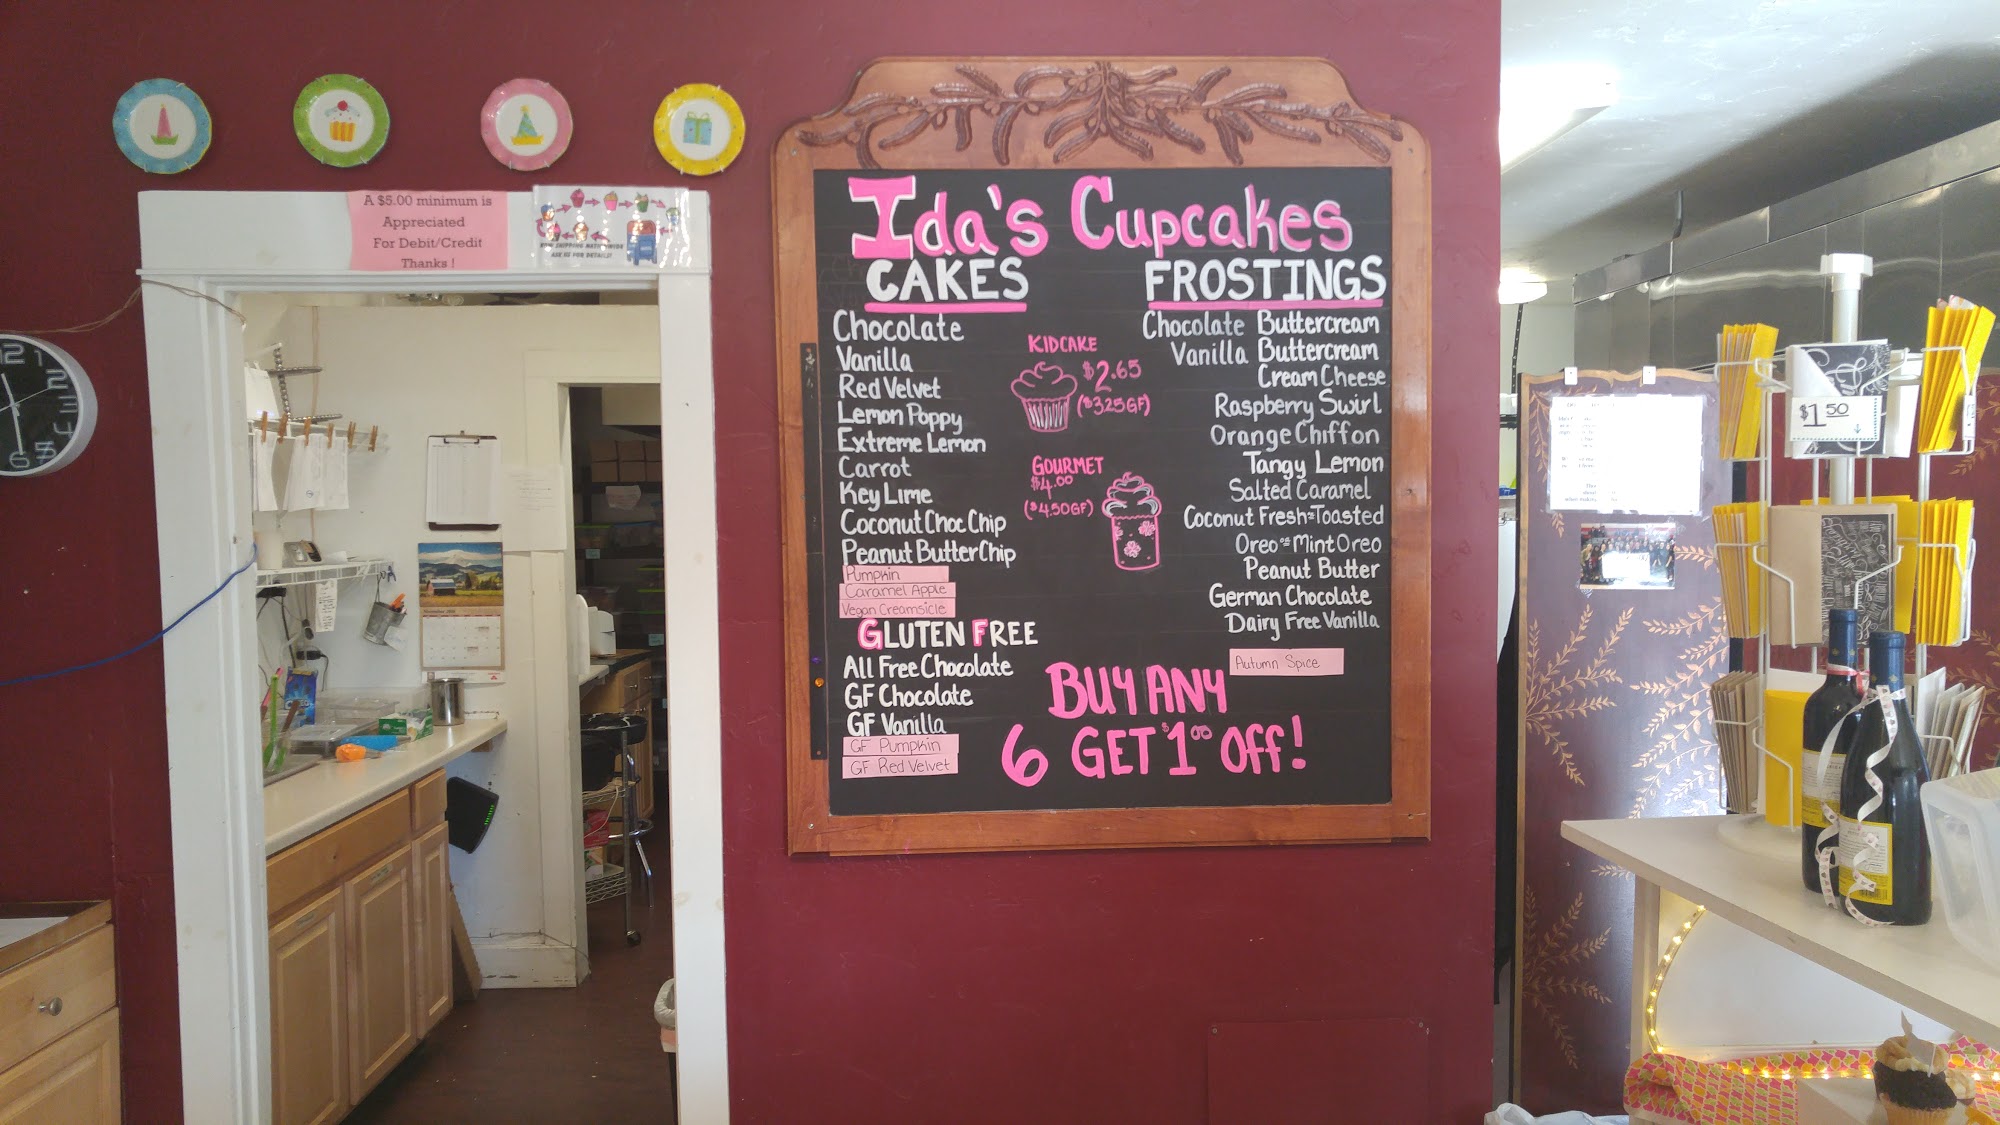 A $5.00 minimum is
Appreciated
For Debit/Credit
Thanks !
NOW SHIPPING NATIONWIDE
ASK US FOR DETAILS!
12
1
2
3
4
5
6
Ida's Cupcakes
CAKES
Chocolate
Vanilla
Red Velvet
Lemon Poppy
Extreme Lemon
Carrot
Key Lime
Coconut Choc Chip
Peanut Butter Chip
Pumpkin
Caramel Apple
Vegan Creamsicle
GLUTEN FREE
All Free Chocolate
GF Chocolate
GF Vanilla
GF Pumpkin
GF Red Velvet
KIDCAKE
$2.65
($3.25 GF)
GOURMET
$4.00
($4.50 GF)
FROSTINGS
Chocolate Buttercream
Vanilla Buttercream
Cream Cheese
Raspberry Swirl
Orange Chiffon
Tangy Lemon
Salted Caramel
Coconut Fresh or Toasted
Oreo or Mint Oreo
Peanut Butter
German Chocolate
Dairy Free Vanilla
Autumn Spice
BUY ANY
6 GET $1.00 Off!
$1.50